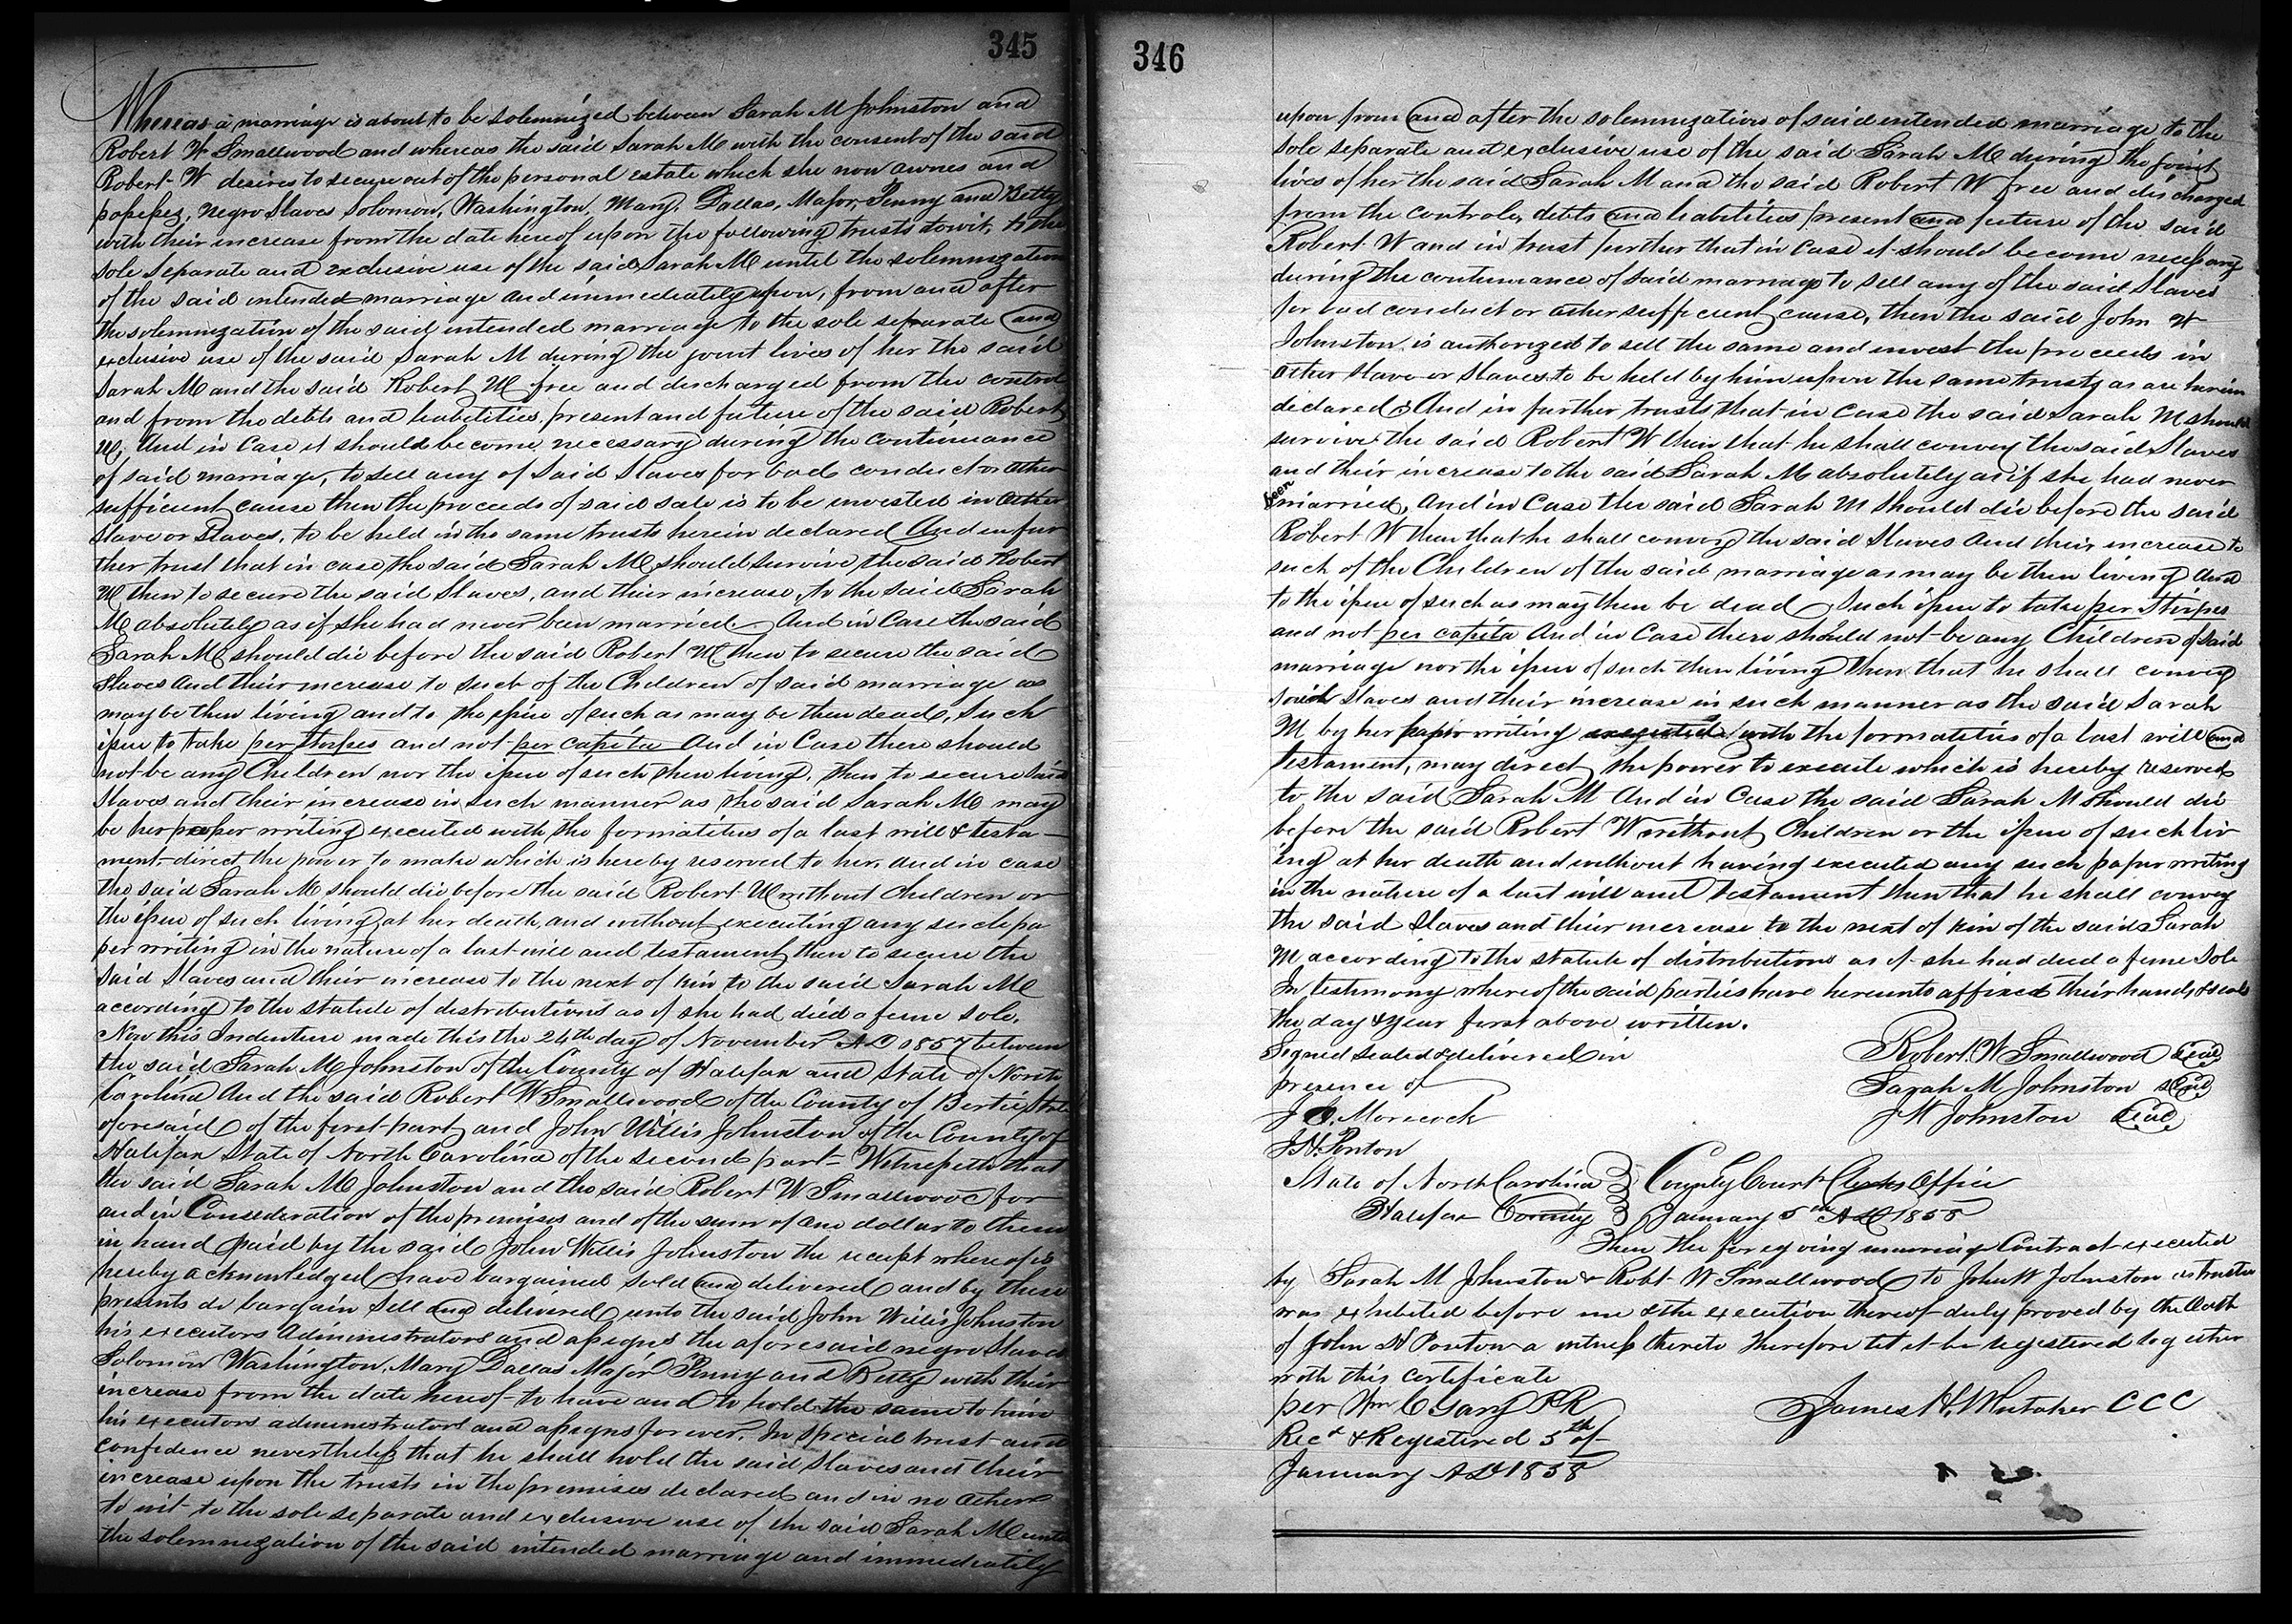 345
Whereas a marriage is about to be solemnized between Sarah M Johnston and
Robert W Smallwood and whereas the said Sarah M with the consent of the said
Robert W desires to secure out of the personal estate which she now ownes and
possesses, negro Slaves Solomon, Washington, Mary, Dallas, Major, Penny and Betty
with their increase from the date hereof upon the following trusts to wit, to the
sole separate and exclusive use of the said Sarah M until the solemnization
of the said intended marriage and immediately upon, from and after
the solemnization of the said intended marriage to the sole separate and
exclusive use of the said Sarah M during the joint lives of her the said
Sarah M and the said Robert W free and discharged from the control
and from the debts and liabilities, present and future of the said Robert
W, And in case it should become necessary during the continuance
of said marriage, to sell any of said Slaves for bad conduct or other
sufficient cause then the proceeds of said sale is to be invested in other
Slave or Slaves, to be held in the same trusts herein declared And in fur
ther trust that in case the said Sarah M should survive the said Robert
W then to secure the said Slaves, and their increase, to the said Sarah
M absolutely as if she had never been married And in case the said
Sarah M should die before the said Robert W then to secure the said
Slaves and their increase to such of the Children of said marriage as
may be then living and to the issue of such as may be then dead, Such
issue to take per stirpes and not per capita And in case there should
not be any Children nor the issue of such then living, then to secure said
Slaves and their increase in such manner as the said Sarah M may
be her paper writing executed with the formalities of a last will & testa-
ment direct the power to make which is hereby reserved to her. And in case
the said Sarah M should die before the said Robert W without Children or
the issue of such living at her death, and without executing any such pa
per writing in the nature of a last will and testament then to secure the
said Slaves and their increase to the next of kin to the said Sarah M
according to the statute of distributions as if she had died a feme sole.
Now this Indenture made this the 24th day of November AD 1857 between
the said Sarah M Johnston of the County of Halifax and State of North
Carolina And the said Robert W Smallwood of the County of Bertie State
aforesaid of the first part and John Willis Johnston of the County of
Halifax State of North Carolina of the second part - Witnesseth that
the said Sarah M Johnston and the said Robert W. Smallwood for
and in Consideration of the premises and of the sum of one dollar to them
in hand paid by the said John Willis Johnston the receipt whereof is
hereby acknowledged have bargained sold and delivered and by these
presents do bargain sell and delivered unto the said John Willis Johnston
his executors Administrators and assigns the aforesaid negro Slaves
Solomon Washington, Mary Dallas Major Penny and Betty with their
increase from the date hereof to have and to hold the same to him
his executors administrators and assigns forever. In special trust and
confidence nevertheless that he shall hold the said Slaves and their
increase upon the trusts in the premises declared and in no other
to wit to the sole separate and exclusive use of the said Sarah M until
the solemnization of the said intended marriage and immediately
346
upon from and after the solemnization of said intended marriage to the
sole separate and exclusive use of the said Sarah M during the joint
lives of her the said Sarah M and the said Robert W free and discharged
from the controle, debts and liabilities present and future of the said
Robert W and in trust further that in case it should become necessary
during the continuance of said marriage to sell any of the said Slaves
for bad conduct or other sufficient cause, then the said John W
Johnston is authorized to sell the same and invest the proceeds in
other Slave or Slaves to be held by him upon the same trusts as are herein
declared And in further trusts that in case the said Sarah M should
survive the said Robert W then that he shall convey the said Slaves
and their increase to the said Sarah M absolutely as if she had never
been married, And in case the said Sarah M should die before the said
Robert W then that he shall convey the said Slaves and their increase to
such of the Children of the said marriage as may be then living and
to the issue of such as may then be dead, Such issue to take per stirpes
and not per capita And in case there should not be any Children of said
marriage nor the issue of such then living then that he shall convey
said Slaves and their increase in such manner as the said Sarah
M by her paper writing executed with the formalities of a last will and
testament, may direct the power to execute which is hereby reserved
to the said Sarah M And in case the said Sarah M should die
before the said Robert W without Children or the issue of such liv
ing at her death and without having executed any such paper writing
in the nature of a last will and testament then that he shall convey
the said Slaves and their increase to the next of kin of the said Sarah
M according to the statute of distributions as if she had died a feme sole
In testimony whereof the said parties have hereunto affixed their hands & seals
the day & year first above written.
Signed sealed & delivered in
presence of
Robert W Smallwood Seal
Sarah M Johnston Seal
J W Johnston Seal
J Morecock
J H Ponton
State of North Carolina County Court Clerks Office
Halifax County January 5th AD 1858
Then the foregoing marriage Contract executed
by Sarah M Johnston & Robt W Smallwood to John W Johnston as trustee
was exhibited before me & the execution thereof duly proved by the Oath
of John H Ponton a witness thereto Therefore let it be registered together
with this certificate
per Wm C Gary PR
James H Whitaker CCC
Recd & Registered 5th of
January AD 1858